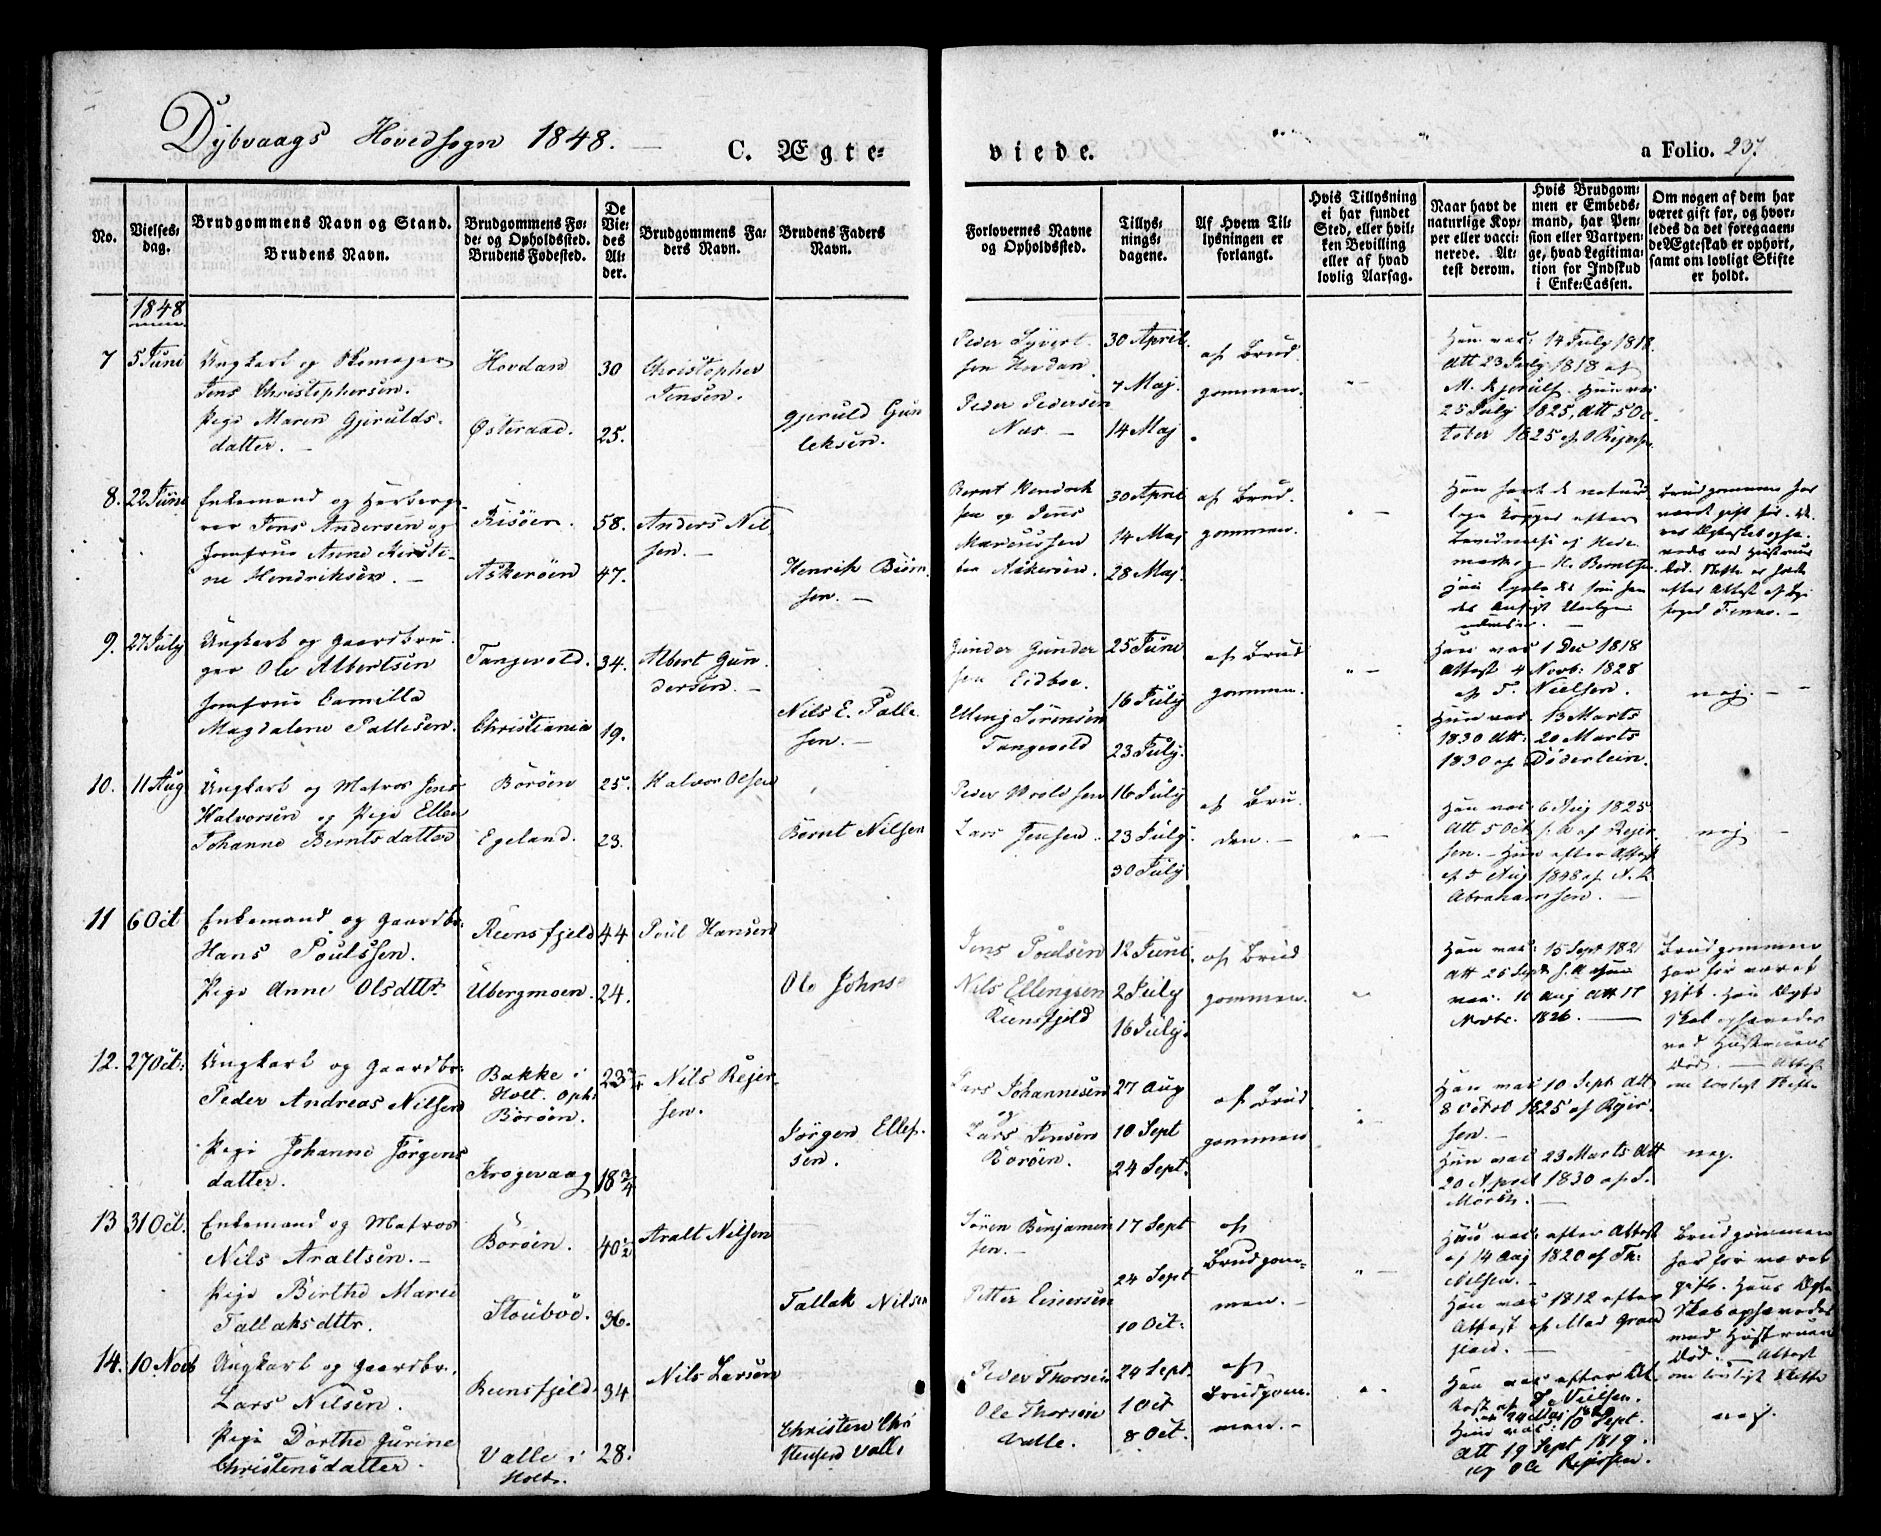 Dybvaags Hovedsogn 1848. —
C. Ægte-
viede.
a Folio. 237.
No.
Vielses-
dag.
Brudgommens Navn og Stand.
Brudens Navn.
Brudgommens Fø-
de- og Opholdssted.
Brudens Fødested.
De
Vie-
des
Al-
der.
Brudgommens Fa-
ders Navn.
Brudens Faders
Navn.
Forlovernes Navne
og Opholdssted.
Tillys-
nings-
dagene.
Af Hvem Til-
lysningen er
forlangt.
Hvis Tillysning
ei har fundet
Sted, eller hvil-
ken Bevilling
eller af hvad
lovlig Aarsag.
Naar havt de
naturlige Kop-
per eller vacci-
nerede. At-
test derom.
Hvis Brudgom-
men er Embeds-
mand, har Pen-
sion eller Vartpen-
ge, hvad Legitima-
tion for Indskud
i Enke-Cassen.
Om nogen af dem har
været gift før, og hvor-
ledes da det foregaaen-
de Ægteskab er ophørt,
samt om lovligt Skifte
er holdt.
1848
7
5 Juni
Ungkarl og Skomager
Jens Christophersen.
Pige Maren Gjerulds-
datter. —
Hovdan
Østeraae.
30
25.
Christopher
Jensen.
Gjeruld Gun
leksen.
Peder Syvert
sen Hovdan
Peder Pedersen
Næs. —
30 April.
7 Maj.
14 Maj
af Brud
gommen.
Han vac: 14 July 1818.
Att 23 July 1818 af
M. Kjerulf. Hun vac
25 July 1825, Att 5 Oc
tober 1825 af O Rejersen
8.
22 Juni
Enkemand og
Jens Andersen og
Jomfrue Anne Kirsti-
ne Hendriksen. —
Risøen.
Askerøen
58.
47.
Anders Nil
sen. —
Henrik Biørn
sen. —
Bernt Hendrik
sen og Jens
Marcussen
Askerøen.
30 April
14 Maj
28 Maj.
af Brud.
gommen.
Han havt de natur
lige Kopper efter
Brudgommen har
været gift før.
9.
27 July
Ungkarl og Gaardbru-
ger Ole Albertsen
Jomfrue Camilla
Magdalene Pallesen.
Tangevold.
Christiania
34.
19.
Albert Gun
dersen. —
Nils E. Palle
sen. —
Gunder Gunder
sen Eidboe.
Elling Sørensen
Tangevold
25 Juni
16 July
23 July.
af Brud
gommen.
Han vac 1 Dec 1818
Attest 4 Novb: 1828
af T. Nielsen.
Hun vac. 13 Marts
1830 Att: 20 Marts
1830 af Døderlein.
nej. —
10.
11 Aug
Ungkarl og Matros Jens
Halvorsen og Pige Ellen
Johanne Berntsdatter
Borøen
Egeland.
25.
23.
Halvor Olsen
Bernt Nilsen
Peder Wroldsen
Lars Jensen.
16 July
23 July.
30 July
af Bru
den. —
Han vac: 6 Aug 1825
Att 5 Oct s. A af Rejer
sen. — Hun efter Attest
af 5 Aug 1848 af N. L
Abrahamsen. —
nej.
11
6 Oct
Enkemand og Gaardbr:
Hans Poulssen.
Pige Anne Olsdttr.
Reensfjeld
Ubergmoen.
44
24.
Poul Hansen
Ole Johns
Jens Poulsen
Nils Ellengsen
Reensfjeld
12 Juni
2 July
16 July.
af Brud
gommen.
Han vac: 15 Sept 1821
Att 25 Sept s. A Hun
vac. 16 Aug Att 17
Novbr. 1826. —
Brudgommen
har før været
gift. Hans Ægte
skab ophævedes
ved Hustruens
Død. — Attest
om lovligt Skifte
12.
27 Oct:
Ungkarl og Gaardbr:
Peder Andreas Nilsen
Pige Johanne Jørgens
datter.
Bakke i
Holt. Oph:
Borøen.
Krogevaag
18 3/4
Nils Rejer-
sen.
Jørgen Ellef-
sen.
Lars Johannesen
og
Lars Jensen
Borøen.
27 Aug
10 Sept
24 Sept.
af Brud
gommen
Han vac 10 Sept Att
8 Octob 1825 af Rejer
sen. —
Hun vac 23 Marts Att
20 April 1830 af S.
nej.
13
31 Oct.
Enkemand og Matros
Nils Araltsen. —
Pige Birthe Marie
Tallaksdttr.
Borøen.
Stoubøe.
40 1/2
36.
Aralt Nilsen
Tallak Nilsen
Søren Benjamin
sen. —
Petter Einersen
17 Sept
24 Sept
10 Oct:
af
Brudgom-
men. —
Han vac: efter Attest
af 14 Aug 1820 af Th:
Nilsen. —
Hun vac 1812 efter
Attest af
Brudgommen
har før været
gift. Hans Ægte
skab ophævedes
ved Hustruens
Død. — Attest
om lovligt Skifte
14.
10 Novb
Ungkarl og Gaardbr.
Lars Nilsen.
Pige Dorthe Gurine
Christensdatter.
Reensfjeld.
Valle i
Holt.
34
28.
Nils Larsen
Christen Chri
stensen Valle
Peder Thorsen
Ole Thorsen
Valle.
24 Sept.
1 Oct
8 Oct.
af
Brudgom-
men. —
Han vac efter At
test af T. Nielsen.
af 24 Maj 1820
Hun vac: 10 Sept.
Att 19 Sept 1819.
af Ole Rejersen.
nej.